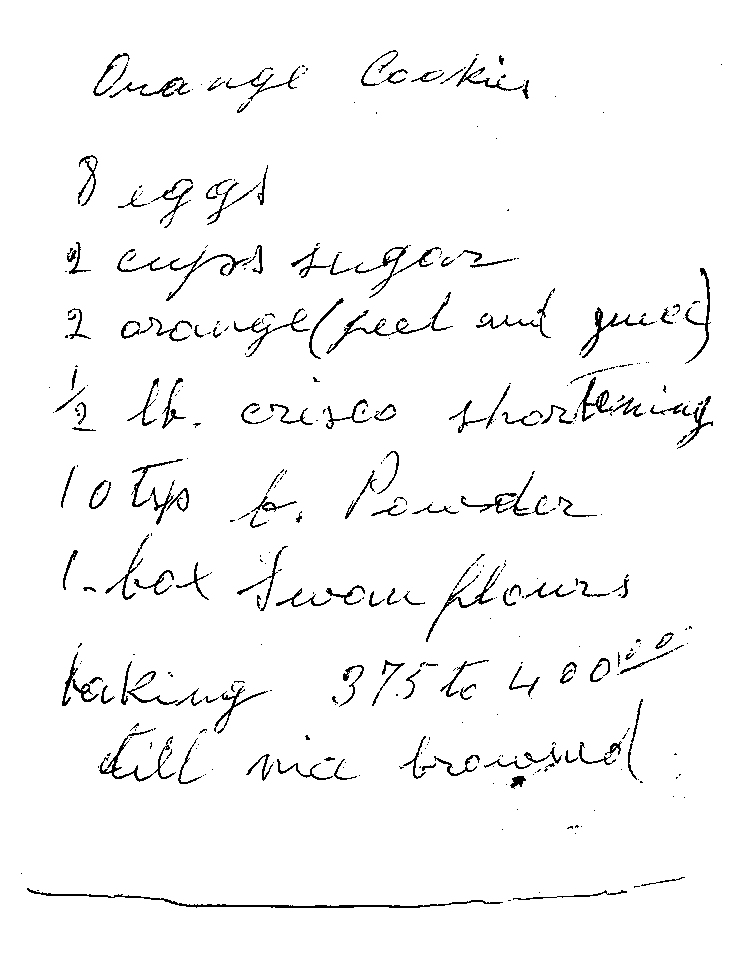 Orange Cookies
8 eggs
2 cups sugar
2 orange (peel and juice)
1/2 lb. crisco shortening
10 tsp b. Powder
1-box Swan flours
baking 375 to 400
till nice browned